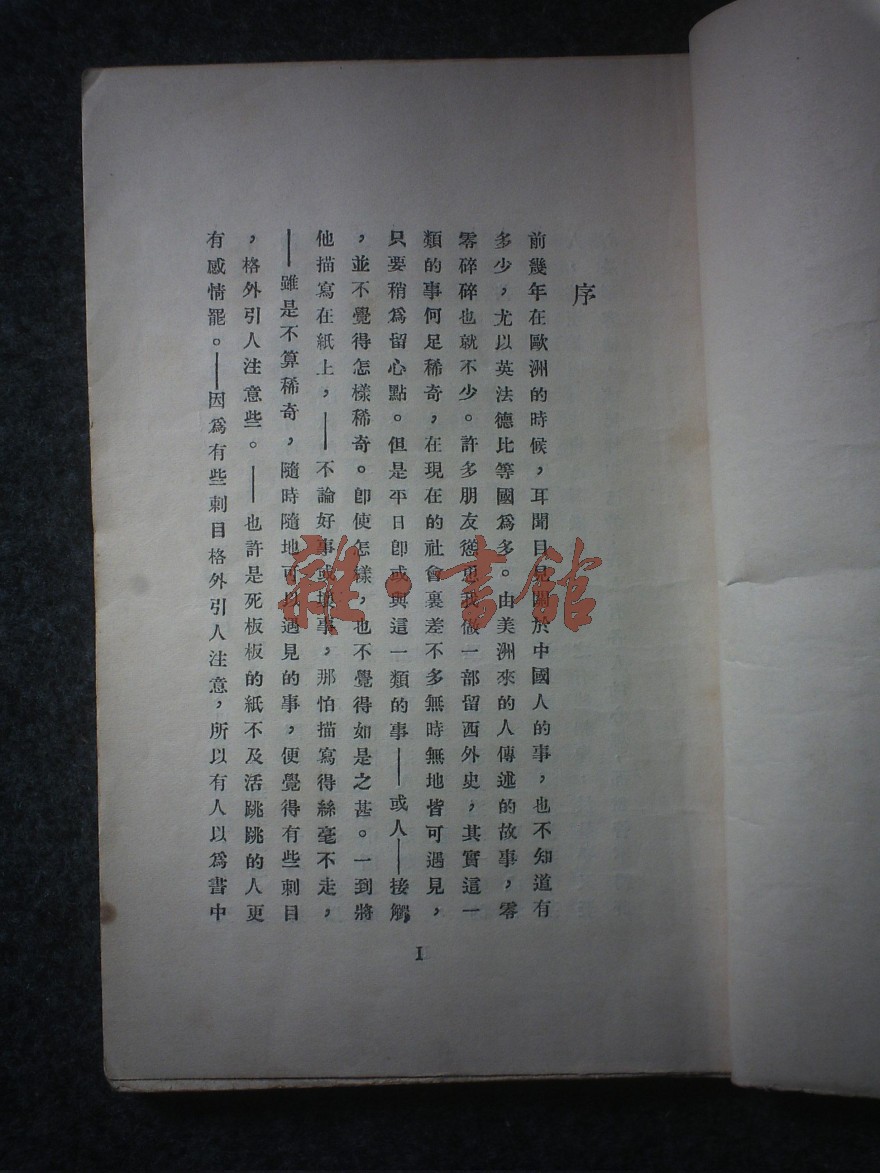 序
前幾年在歐洲的時候，耳聞目見關於中國人的事，也不知道有
多少，尤以英法德比等國爲多。由美洲來的人傳述的故事，零
零碎碎也就不少。許多朋友慫恿我做一部留西外史，其實這一
類的事何足稀奇，在現在的社會裏差不多無時無地皆可遇見，
只要稍爲留心點。但是平日卽或與這一類的事——或人——接觸
，並不覺得怎樣稀奇。卽使怎樣，也不覺得如是之甚。一到將
他描寫在紙上，——不論好事或壞事，那怕描寫得絲毫不走，
——雖是不算稀奇，隨時隨地可以遇見的事，便覺得有些刺目
，格外引人注意些。——也許是死板板的紙不及活跳跳的人更
有感情罷。——因爲有些刺目格外引人注意，所以有人以爲書中
I
雜·書館